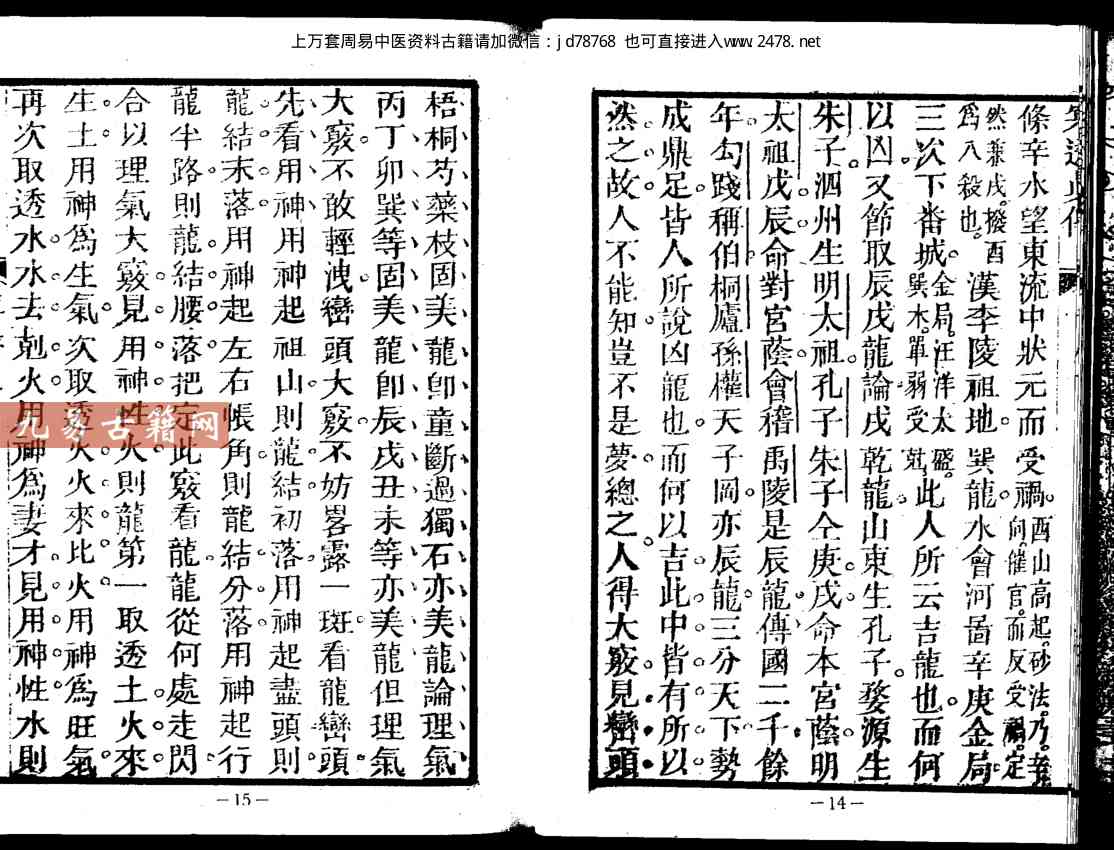 上万套周易中医资料古籍请加微信：jd78768 也可直接进入www.2478.net
條辛水望東流中狀元而受禍。酉山高起。砂法。乃辛向。催官。而反受禍。定
然兼戌。撥酉爲八殺也。漢李陵祖地。巽龍。水會河啚辛庚金局。
三次下番城。金局。汪洋太盛。巽木單弱。受尅。此人所云吉龍也。而何
以凶又節取辰戌龍論戌乾龍。山東生孔子。婺源生
朱子。泗州生明太祖孔子朱子仝庚。戌命本宮蔭。明
太祖戊辰命對宮蔭。會稽禹陵是辰龍。傳國二千餘
年。勾踐稱伯。桐廬孫權天子岡。亦辰龍。三分天下。勢
成鼎足。皆人所說凶龍也。而何以吉。此中皆有所以
然之故。人不能知。豈不是夢。總之。人得大竅。見巒頭
梧桐芍藥枝固美。龍卽童斷過獨石亦美。龍論理氣
丙丁卯巽等固美。龍卽辰戌丑未等亦美。龍但理氣
大竅。不敢輕洩。巒頭大竅。不妨畧露一斑。看龍巒頭。
先看用神。用神起祖山。則龍結初落。用神起盡頭。則
龍結末落。用神起左右帳角。則龍結分落。用神起行
龍半路。則龍結腰落。把定此竅。看龍龍從何處走閃。
合以理氣大竅。見用神性火。則龍第一取透土。火來
生土。用神爲生氣。次取透火。火來比火。用神爲旺氣。
再次取透水。水去尅火。用神爲妻才。見用神性水。則
九易古籍网
－15－
－14－